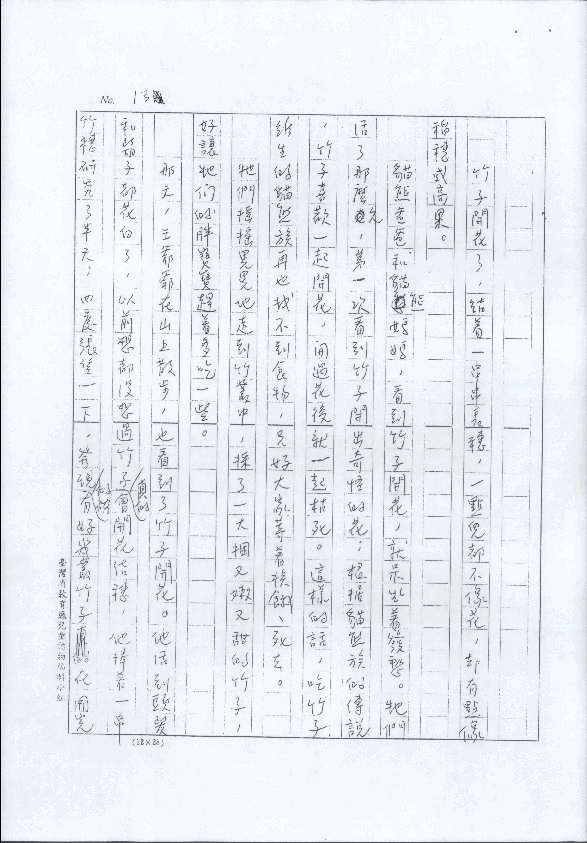 No. 13
竹子開花了，結著一串串長穗，一點兒都不像花，却有點像
稻穗或高粱。
貓熊爸爸和貓熊媽媽，看到竹子開花，就呆坐著發愁。牠們
活了那麼久，第一次看到竹子開出奇怪的花；根据貓熊族的傳說
，竹子喜歡一起開花，開過花後就一起枯死。這樣的話，吃竹子
維生的貓熊族再也找不到食物，只好大家等著挨餓、死去。
牠們搖搖晃晃地走到竹叢中，採了一大捆又嫩又甜的竹子，
好讓牠們的胖寶寶趕著多吃一些。
那天，王爺爺在山上散步，也看到了竹子開花。他活到頭髮
和鬍子都花白了，以前想都沒想過竹子真的會開花結穗 他捧著一串
竹穗研究了半天；四處張望一下，發現有好幾叢竹子 花開完
臺灣省教育廳兒童讀物編輯小組
(12×20)